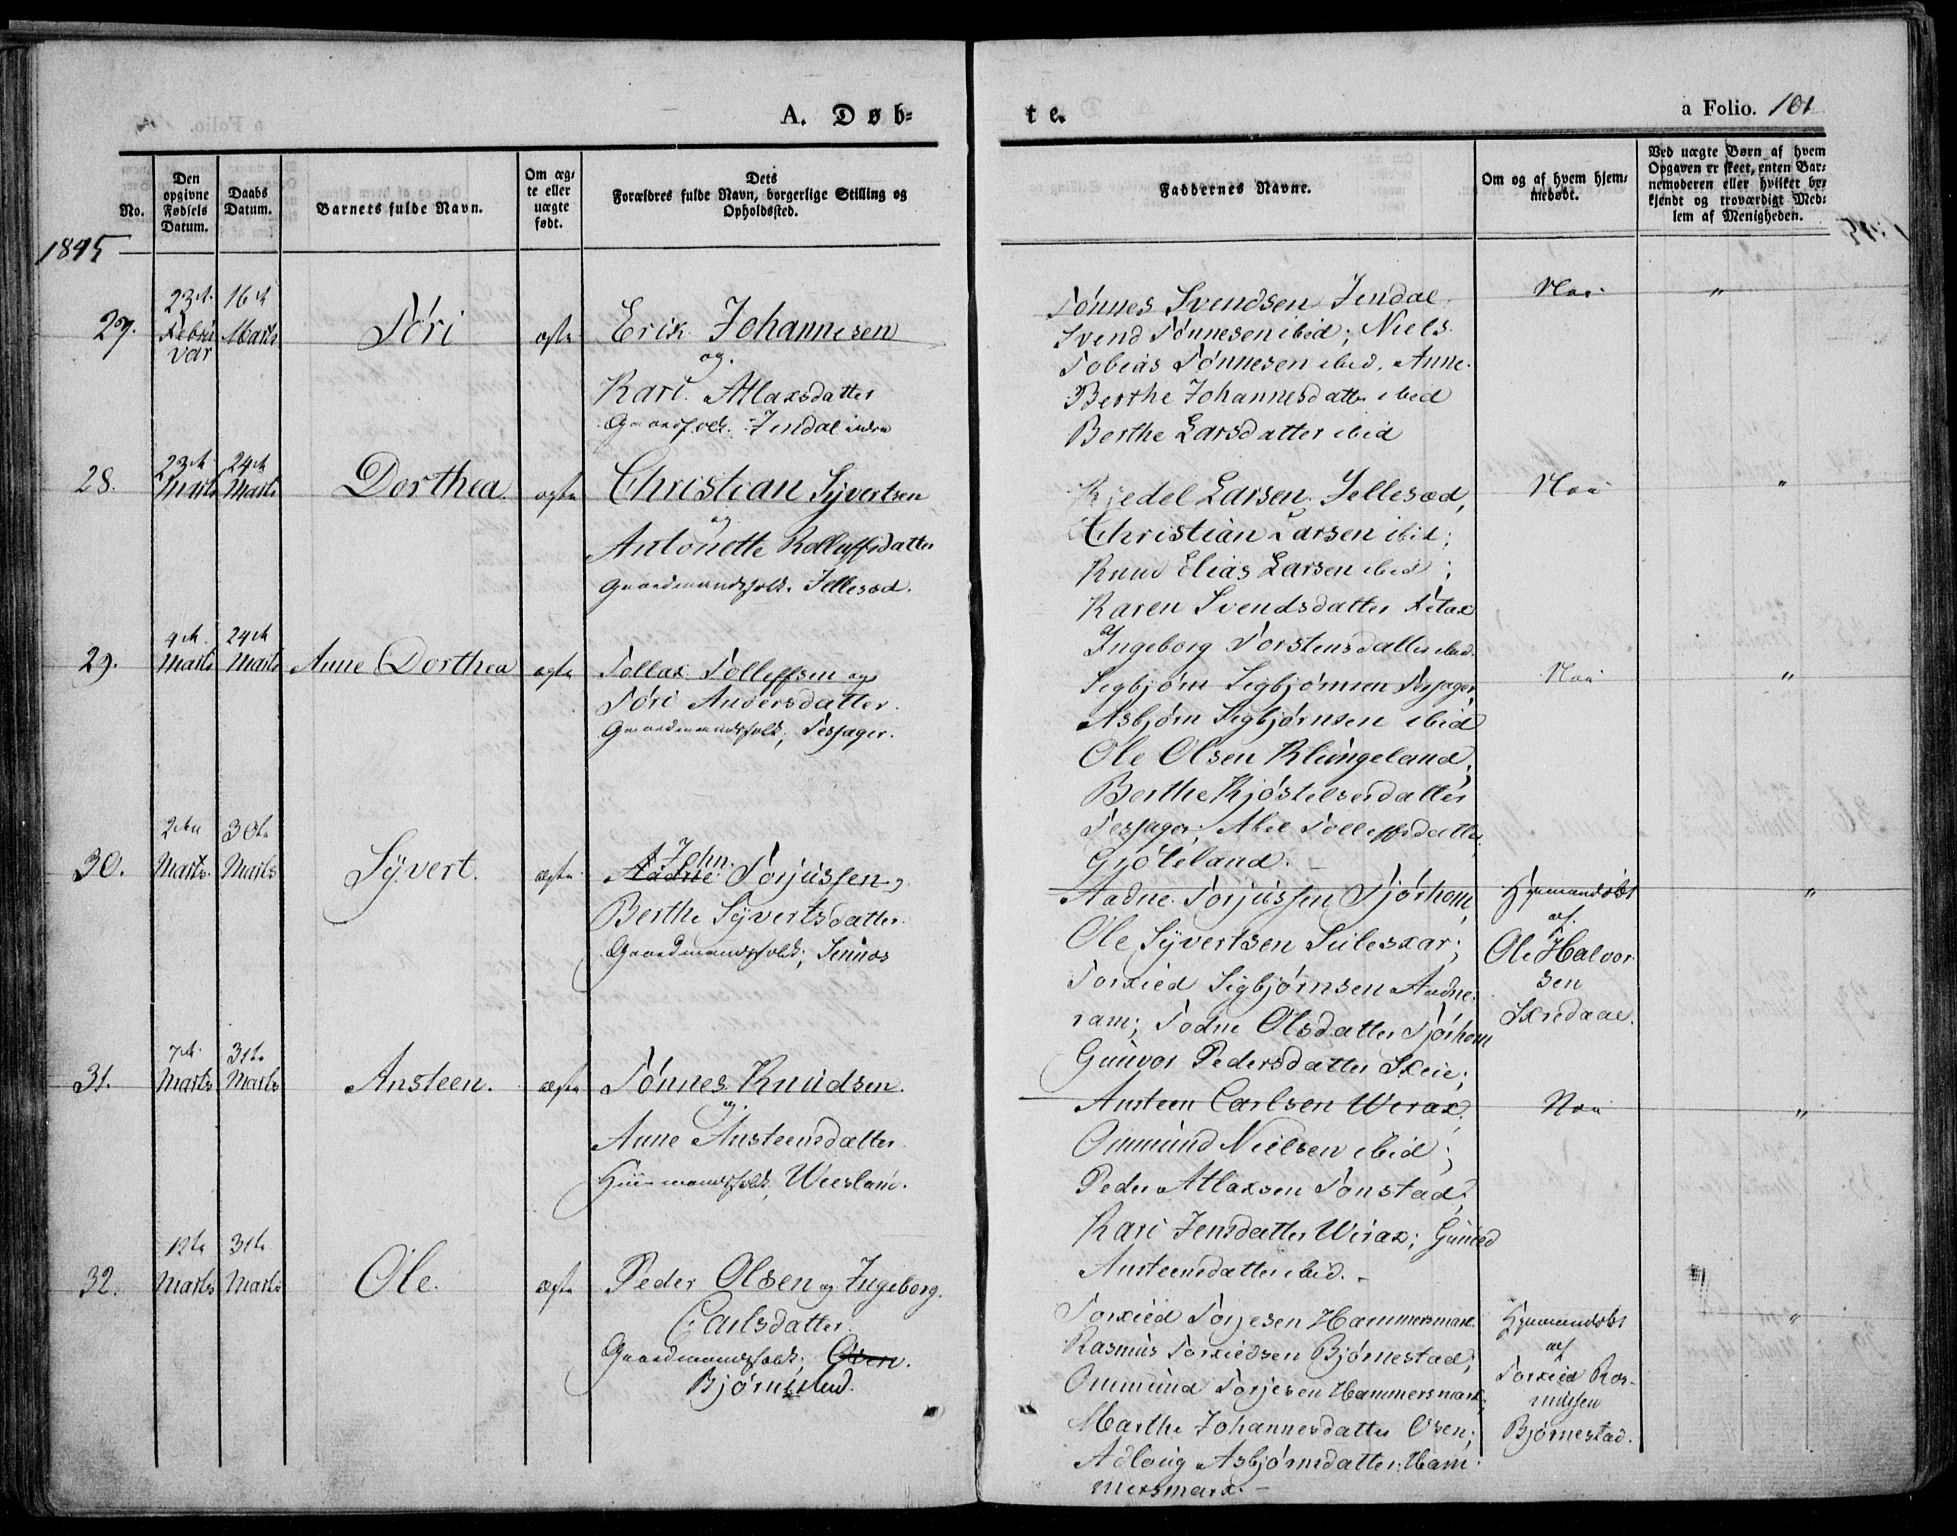 A. Døb=
te.
a Folio. 101
No.
Den opgivne Fødsels Datum.
Daabs Datum.
Barnets fulde Navn.
Om æg-
te eller
uægte
født.
Dets
Forældres fulde Navn, borgerlige Stilling og
Opholdssted.
Faddernes Navne.
Om og af hvem hjem-
medøbt.
Ved uægte Børn af hvem
Opgaven er skeet, enten Bar-
nemoderen eller hvilket be-
kjendt og troværdigt Med-
lem af Menigheden.
1845
27.
23de Februar
16de Marts
Tøri
ægte
Erik Johannesen
og
Kari Atlaxsdatter
Gaardfolk Josdal indre
Tønnes Svendsen Josdal
Svend Tønnesen ibid; Niels
Tobias Tønnesen ibid, Anne
Berthe Johannesdatter ibid
Berthe Larsdatter ibid
Nei
"
28.
23de Marts
24de Marts
Dorthea
ægte
Christian Syvertsen
og
Antonette Rolluffsdatter
Gaardmandsfolk. Sellesod.
Kjedel Larsen Sellesod,
Christian Larsen ibid;
Knud Elias Larsen ibid;
Karen Svendsdatter Fetax
og
Ingeborg Torstensdatter ibid.
Nei
"
29.
4de Marts
24de Marts
Anne Dorthea
ægte
Tollax Tolleffsen og
Tøri Andersdatter.
Gaardmandsfolk; Tesjager.
Sigbjørn Sigbjørnsen Tesjager,
Asbjørn Sigbjørnsen ibid
Ole Olsen Klungeland;
Berthe Kjøstelsdatter
Tesjager; Abel Tolleffsdatter
Gjøteland.
Nei
"
30.
2den Marts
30te Marts
Syvert.
ægte
John
Aadne Torjussen,
Berthe Syvertsdatter
Gaardmandsfolk; Sinnes
Aadne Torjussen Tjørhom,
Ole Syvertsen Suleskar;
Torkied Sigbjørnsen Aadne-
ram; Todne Olsdatter Tjørhom
Gunvor Pedersdatter Skeie;
Hjemmedøbt
af
Ole Halvor
sen
"
31.
7de Marts
31te Marts
Ansteen.
ægte
Tønnes Knudsen
og
Anne Ansteensdatter
Huusmandsfolk, Weesland.
Ansteen Carlsen Werax
Ommund Nielsen ibid;
Peder Atlaxsen Tonstad,
Kari Jensdatter Wirax; Gunild
Ansteensdatter ibid.
Nei
"
32.
12te Marts
31te Marts
Ole.
ægte
Peder Olsen og Ingeborg
Carlsdatter
Gaardmandsfolk; Osen.
Bjørnestad.
Torkied Torjesen Hammersmark
Rasmus Torkiedsen Bjørnestad;
Ommund Torjesen Hammersmark;
Marthe Johannesdatter Osen;
Adloug Asbjørnsdatter Ham
mersmark.
Hjemmedøbt
af
Torkied Ras-
mussen
Bjørnestad.
"